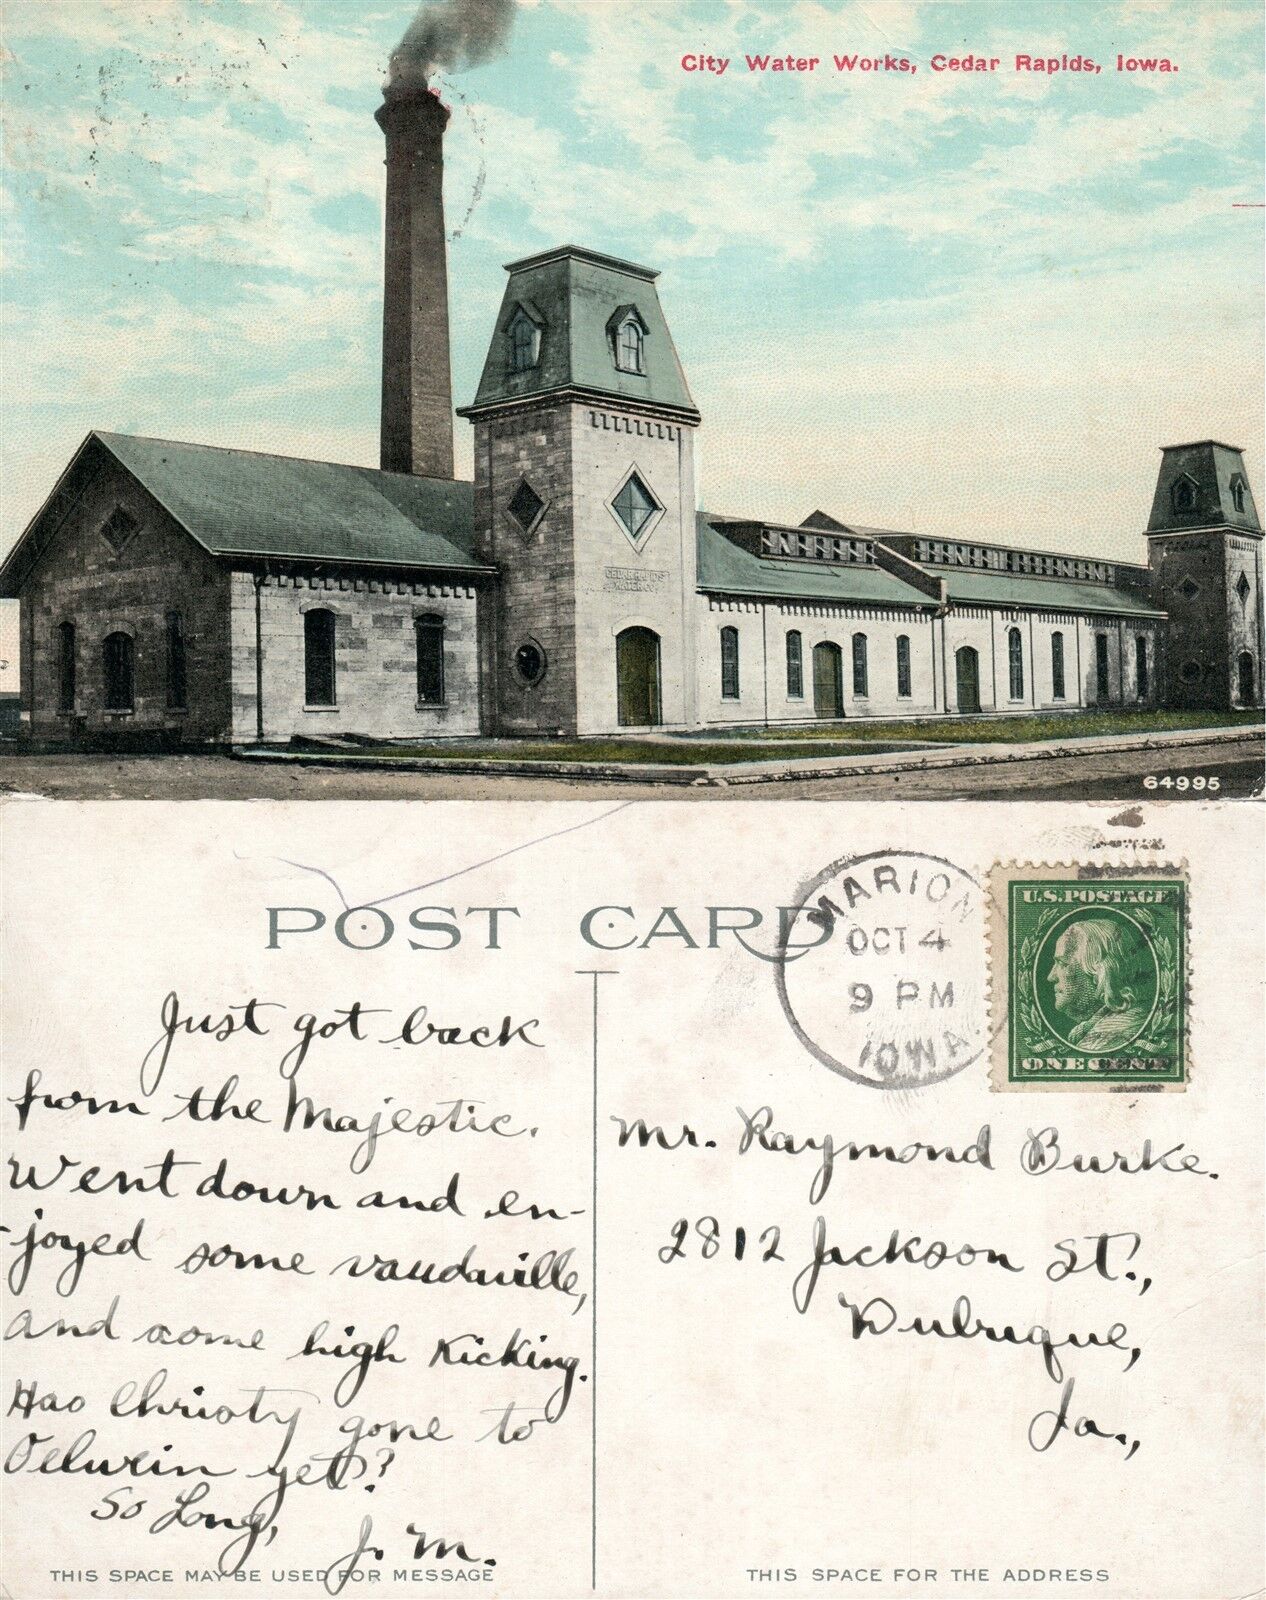 City Water Works, Cedar Rapids, Iowa.
CEDAR RAPIDS
WATER CO.
64995
POST CARD
MARION
OCT 4
9 PM
IOWA.
U.S. POSTAGE
ONE CENT
Just got back
from the Majestic.
Went down and en-
-joyed some vaudaville,
and some high kicking.
Has Christy gone to
Oelwein yet?
So Long,
J. M.
Mr. Raymond Burke.
2812 Jackson St.,
Dubuque,
Ia.,
THIS SPACE MAY BE USED FOR MESSAGE
THIS SPACE FOR THE ADDRESS